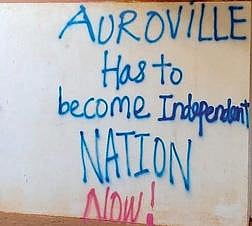 AUROVILLE
Has to
become Independent
NATION
NOW!